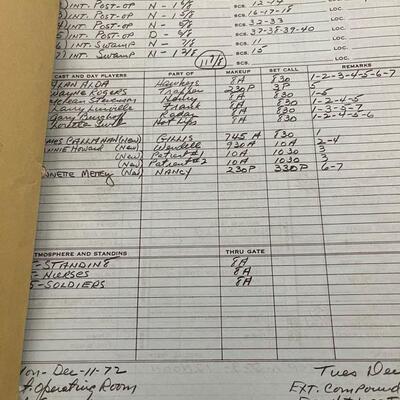 ) INT. POST-OP N - 1/8 SCS. 12-14 LOC.
3) INT. POST-OP N - 5/8 SCS. 16-17-18 LOC.
4) INT. POST-OP N - 4/8 SCS. 32-33 LOC.
5) INT. POST-OP D - 6/8 SCS. 37-38-39-40 LOC.
6) INT. SWAMP N - 5/8 SCS. 11 LOC.
7) INT. SWAMP N - 1 3/8 SCS. 15 LOC.
CAST AND DAY PLAYERS PART OF MAKEUP SET CALL REMARKS
ALAN ALDA Hawkeye 8A 830 1-2-3-4-5-6-7
Wayne Rogers Trapper 230P 3P 5
McLean Stevenson Henry 8A 830 1-5
Larry Linville Frank 8A 830 1-2-4-5
Gary Burghoff Radar 8A 830 1-2-4-5
Loretta Swit Hot Lips 8A 830 1-2-4-5-6
James Callahan (New) GILLIS 745A 830 1
Annie Howard (New) Wendell 930A 10A 2-4
(New) Patient #1 10A 1030 3
(New) Patient #2 10A 1030 3
Lynnette Mettey (New) NANCY 230P 330P 6-7
ATMOSPHERE AND STANDINS THRU GATE
-STANDINS 8A
-NURSES 8A
5-SOLDIERS 8A
Mon- Dec-11-72 Tues Dec
INT. Operating Room EXT. Compound